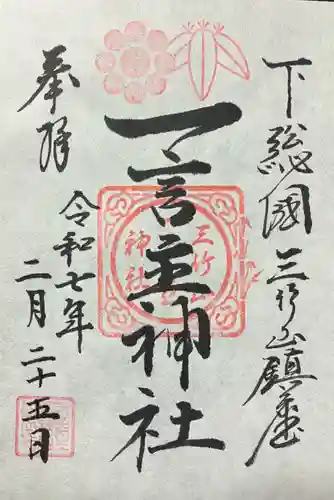 下総國三竹山鎮座
一言主神社
奉拝
令和七年
二月二十五日
三竹山
神社